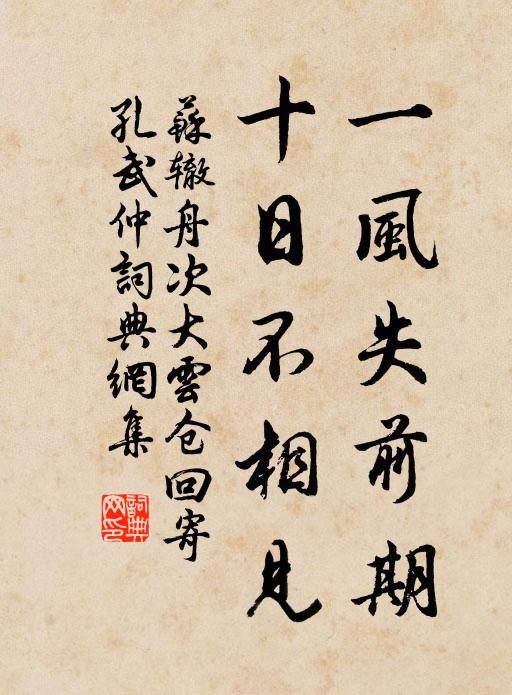 一風失前期
十日不相見
蘇辙舟次大雲仓回寄
孔武仲詞典網集
詞典
网印